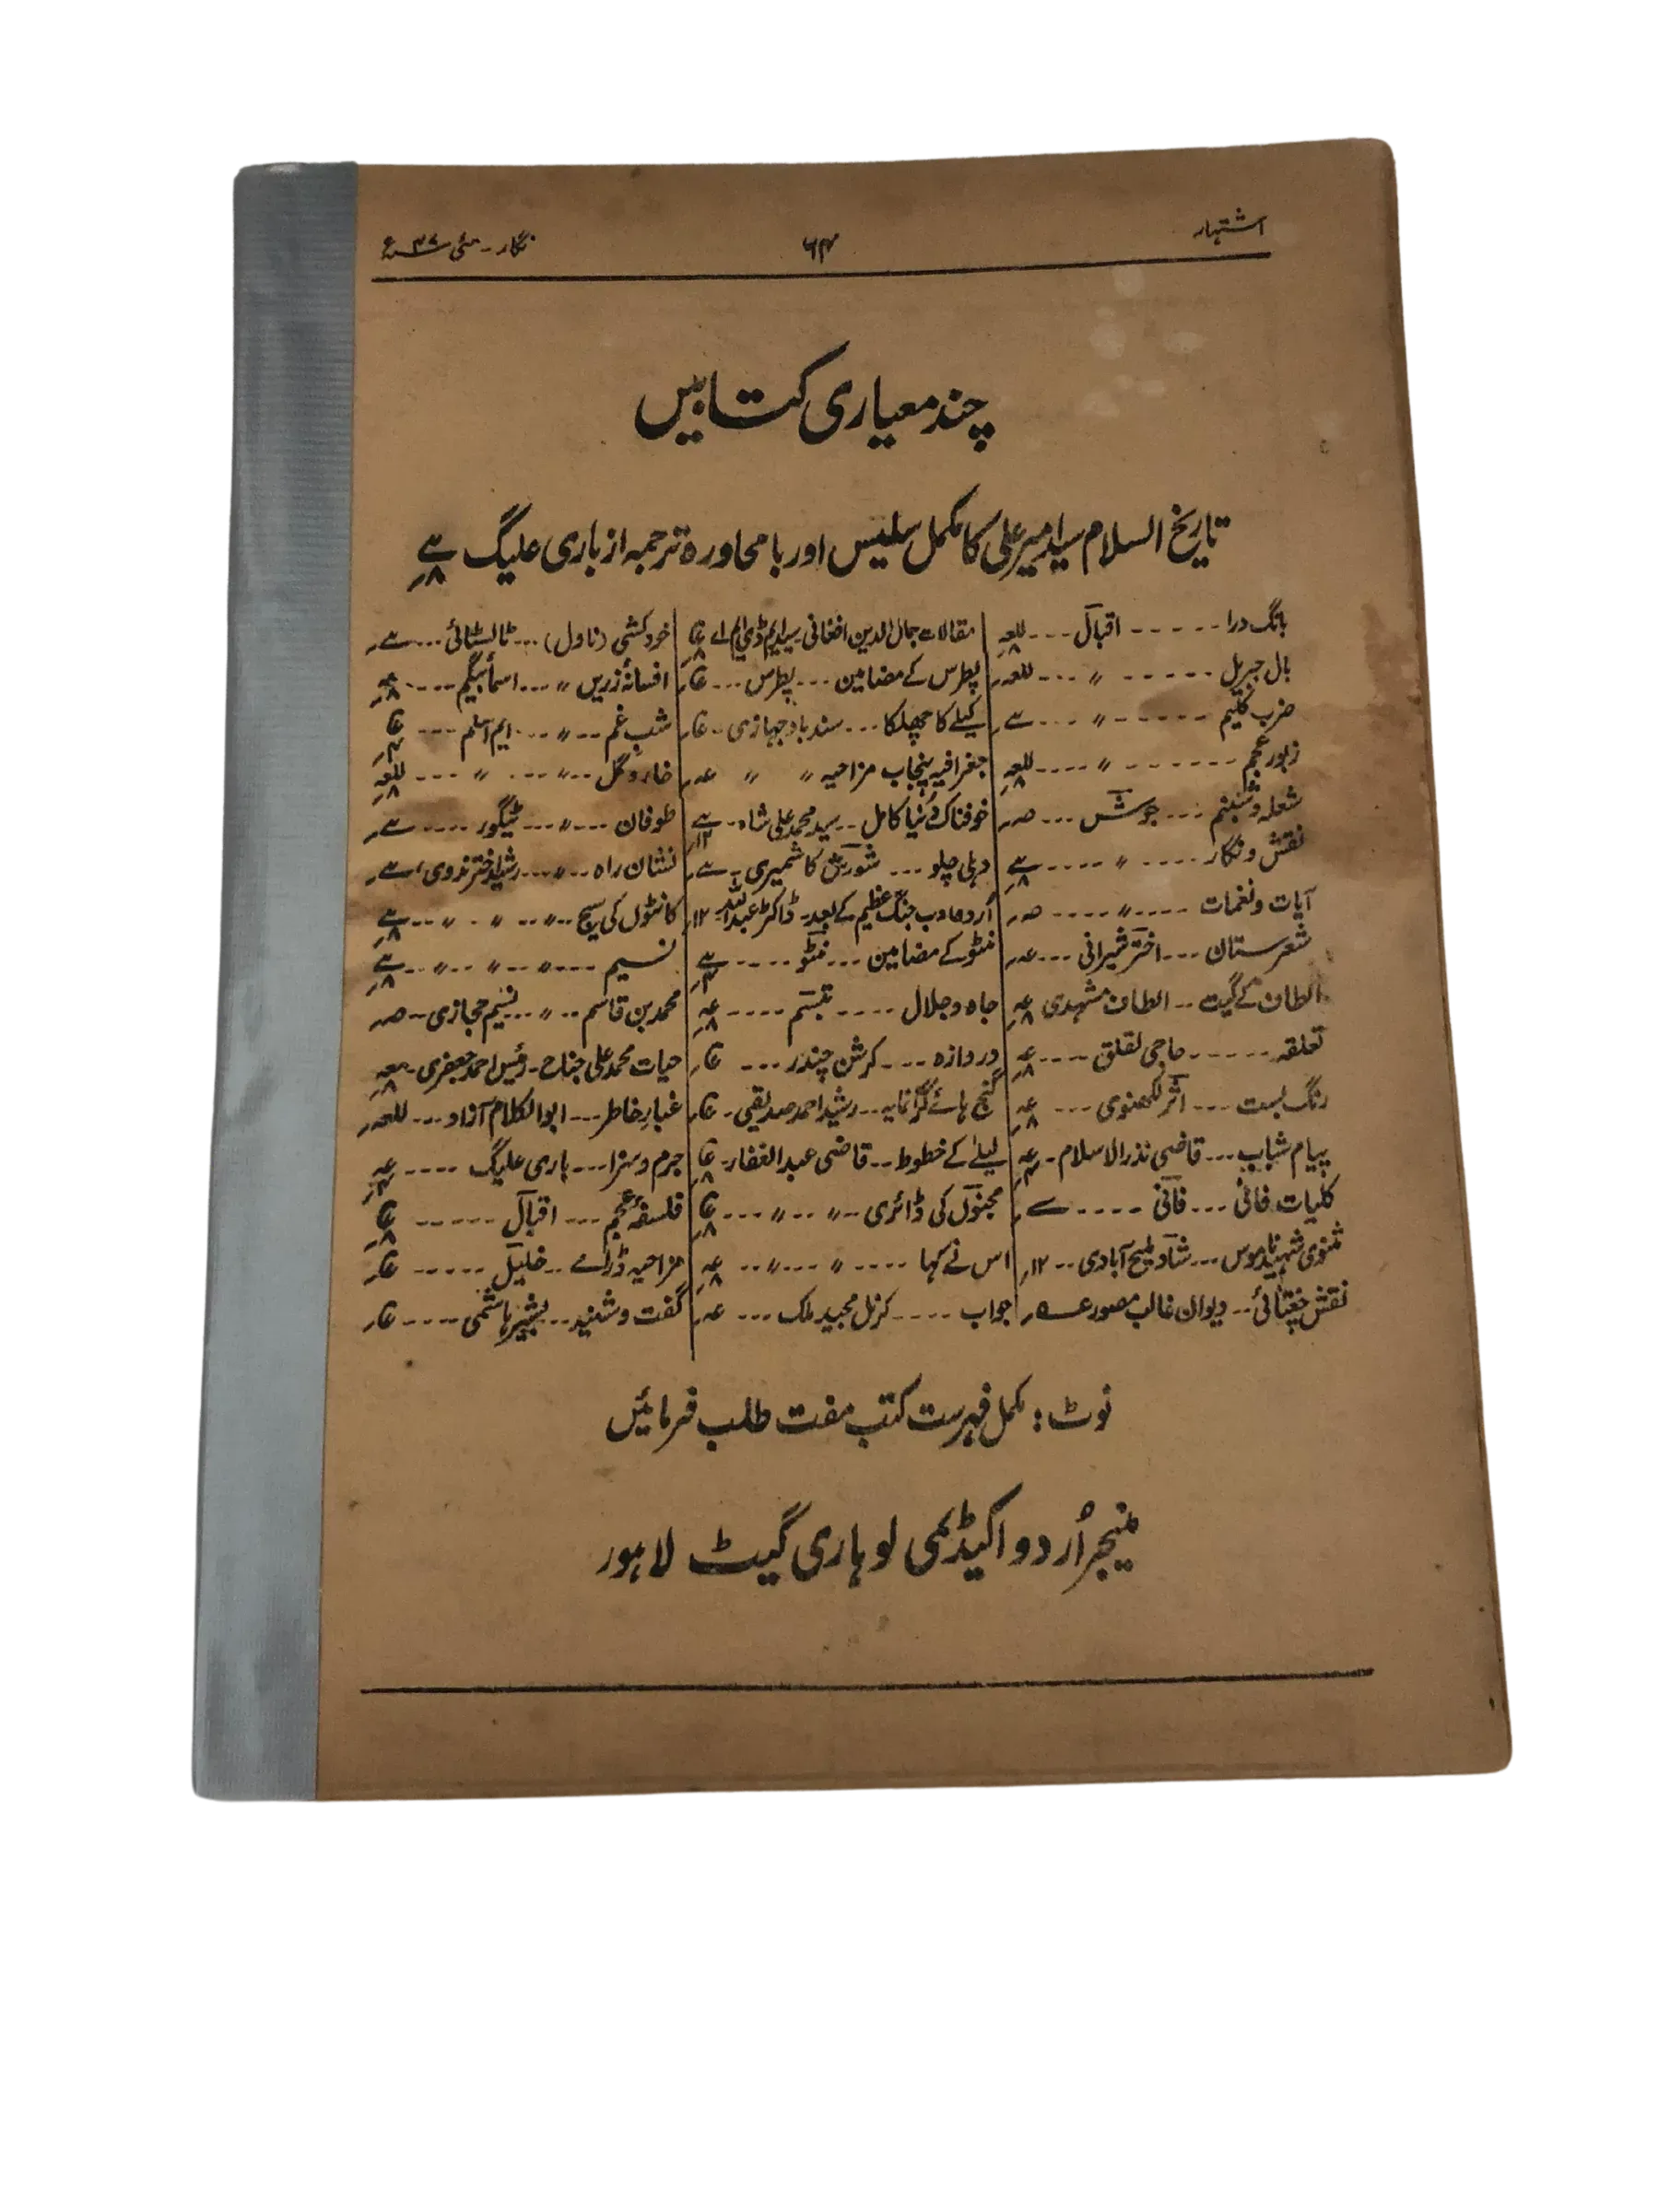 اشتہار
۶۴
نگار۔ مئی ۴۷ء
چند معیاری کتابیں
تاریخ اسلام سید امیر علی کا مکمل سلیس اور با محاورہ ترجمہ از باری علیگ
بانگ درا ------ اقبال ---
بال جبریل ------ 〃 ---
ضرب کلیم ------ 〃 ---
زبور عجم ------ 〃 ----
شعلہ و شبنم --- جوش ---
نقش و نگار ---- 〃 ----
آیات و نغمات ---- 〃 ----
شعرستان --- اختر شیرانی ---
الطاف کے گیت -- الطاف مشہدی
لقلقہ ------ حاجی لقلق ----
رنگ بست --- اثر لکھنوی ---
پیام شباب --- قاضی نذر الاسلام -
کلیات فانی --- فانی ----
مثنوی شہید ناموس --- شاد ملیح آبادی -- ۱۲؍
نقش چغتائی -- دیوان غالب مصور
مقالات جمال الدین افغانی سید ایم ڈی ایم اے
پطرس کے مضامین --- پطرس ---
کیلے کا چھلکا --- سندباد جہازی -
جغرافیہ پنجاب مزاحیہ 〃 〃
خوفناک دنیا کامل -- سید محمد علی شاہ -
دہلی چلو --- شورش کاشمیری -
اردو ادب جنگ عظیم کے بعد - ڈاکٹر عبد اللہ ۱۲؍
منٹو کے مضامین --- منٹو ----
جاہ و جلال ---- تبسم ----
دروازہ --- کرشن چندر ---
گنج ہائے گرانمایہ -- رشید احمد صدیقی -
لیلے کے خطوط -- قاضی عبد الغفار -
مجنوں کی ڈائری -- 〃 -- 〃 ---
اس نے کہا ---- 〃 --- 〃 --
جواب ---- کرنل مجید ملک ---
خودکشی (ناول) --- ٹالسٹائی ---
افسانہ زریں 〃 --- اسما بیگم ----
شب غم -- 〃 --- ایم اسلم ---
خار و گل -- 〃 --- 〃 ---
طوفان --- 〃 --- ٹیگور ----
نشان راہ -- 〃 --- رشید اختر ندوی
کانٹوں کی سیج -- 〃 -- 〃 - 〃 --
نسیم --- 〃 -- 〃 -- 〃 --
محمد بن قاسم -- 〃 -- نسیم حجازی -
حیات محمد علی جناح - رئیس احمد جعفری -
غبار خاطر --- ابو الکلام آزاد ---
جرم و سزا --- باری علیگ ----
فلسفہ عجم --- اقبال ------
مزاحیہ ڈرامے -- خلیل -----
گفت و شنید -- بشیر ہاشمی ----
نوٹ: مکمل فہرست کتب مفت طلب فرمائیں
منیجر اُردو اکیڈیمی لوہاری گیٹ لاہور